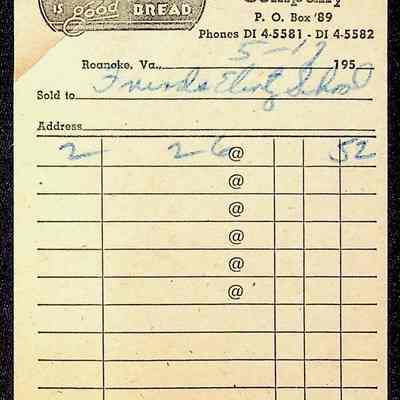 Company
IS good BREAD
P. O. Box '89
Phones DI 4-5581 - DI 4-5582
Roanoke, Va., 5-17 195
Sold to Friends Elmty School
Address
2 26 @ 52
@
@
@
@
@